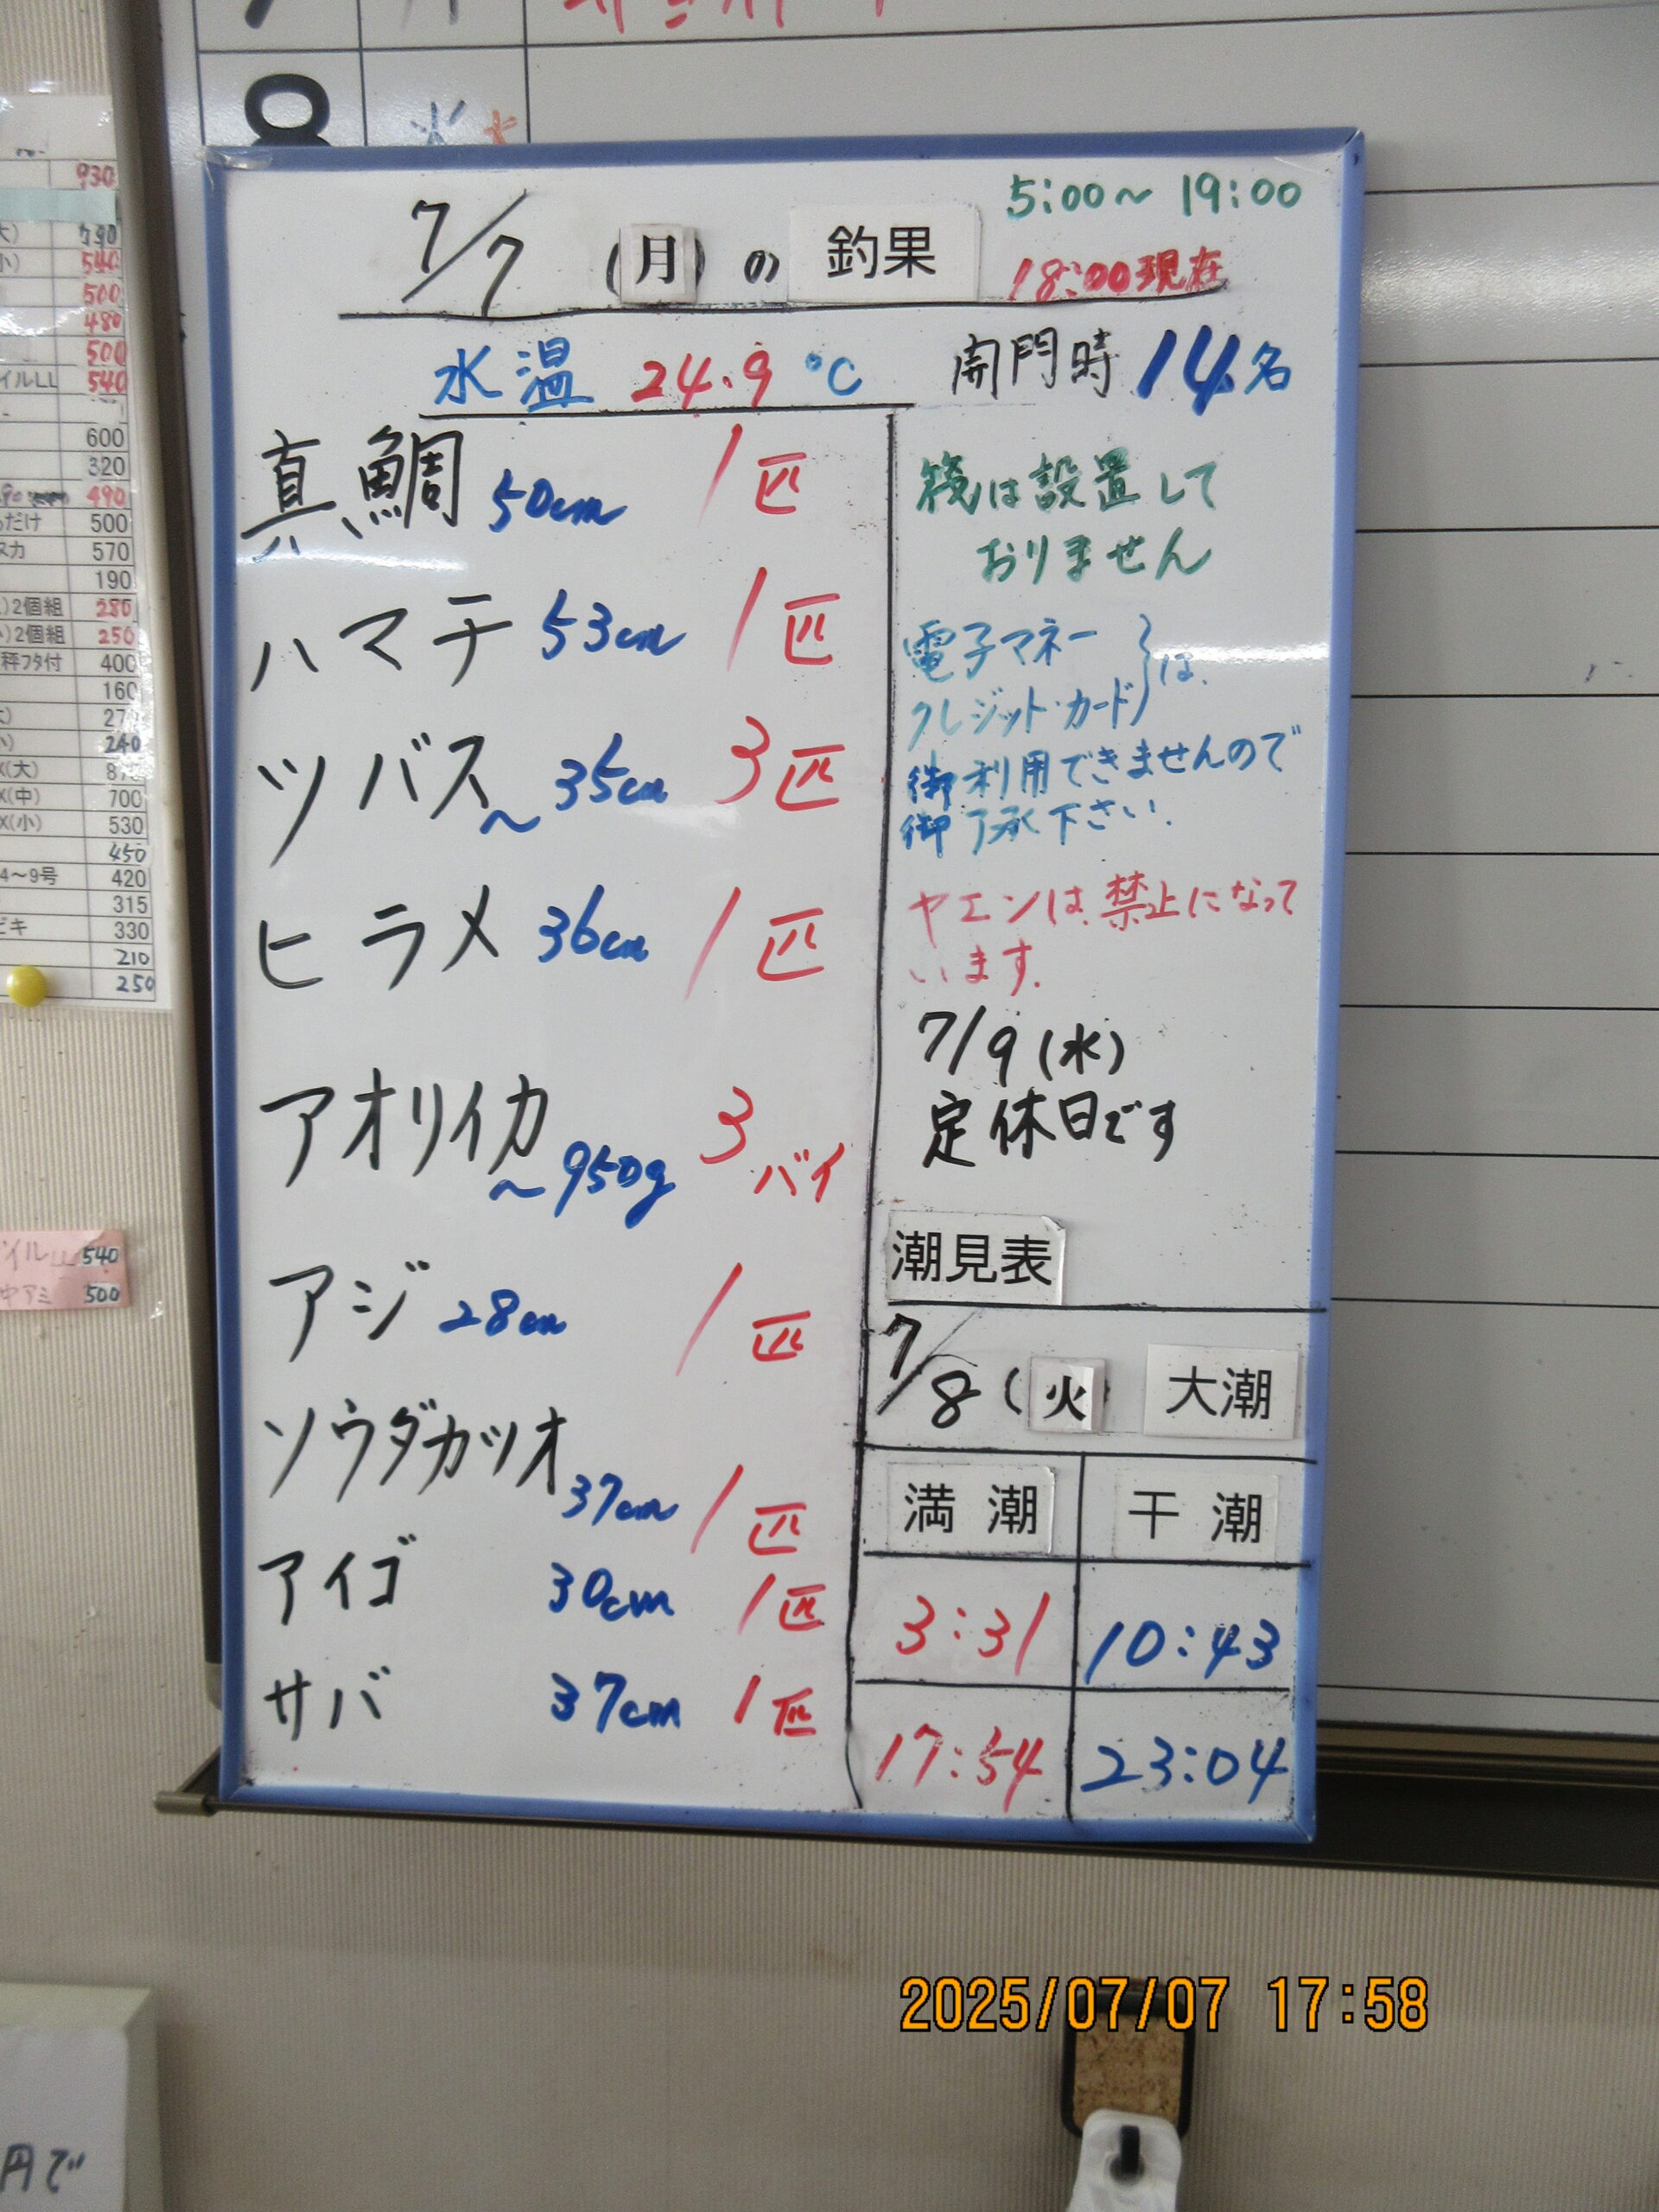 930
790
540
500
480
500
イルLL 540
600
320
490
だけ 500
スカ 570
190
)2個組 280
)2個組 250
秤フタ付 400
160
270
240
X(大)
X(中) 700
X(小) 530
450
4～9号 420
315
ビキ 330
210
250
イルLL 540
中アミ 500
8 火
7/7 (月) の 釣果
5:00～19:00
18:00現在
水温 24.9℃ 開門時 14名
真鯛 50cm 1匹
ハマチ 53cm 1匹
ツバス ～35cm 3匹
ヒラメ 36cm 1匹
アオリイカ ～950g 3バイ
アジ 28cm 1匹
ソウダカツオ 37cm 1匹
アイゴ 30cm 1匹
サバ 37cm 1匹
筏は設置して
おりません
電子マネー
クレジット・カード は、
御利用できませんので
御了承下さい.
ヤエンは、禁止になって
います.
7/9(水)
定休日です
潮見表
7/8(火) 大潮
満潮 干潮
3:31 10:43
17:54 23:04
2025/07/07 17:58
円で